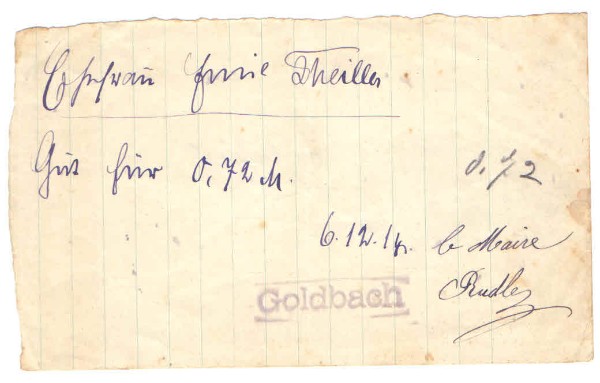 Ehefrau Emil Theiller
Gut für 0,72 M. 0.72
6.12.14. le Maire
Goldbach Rudler